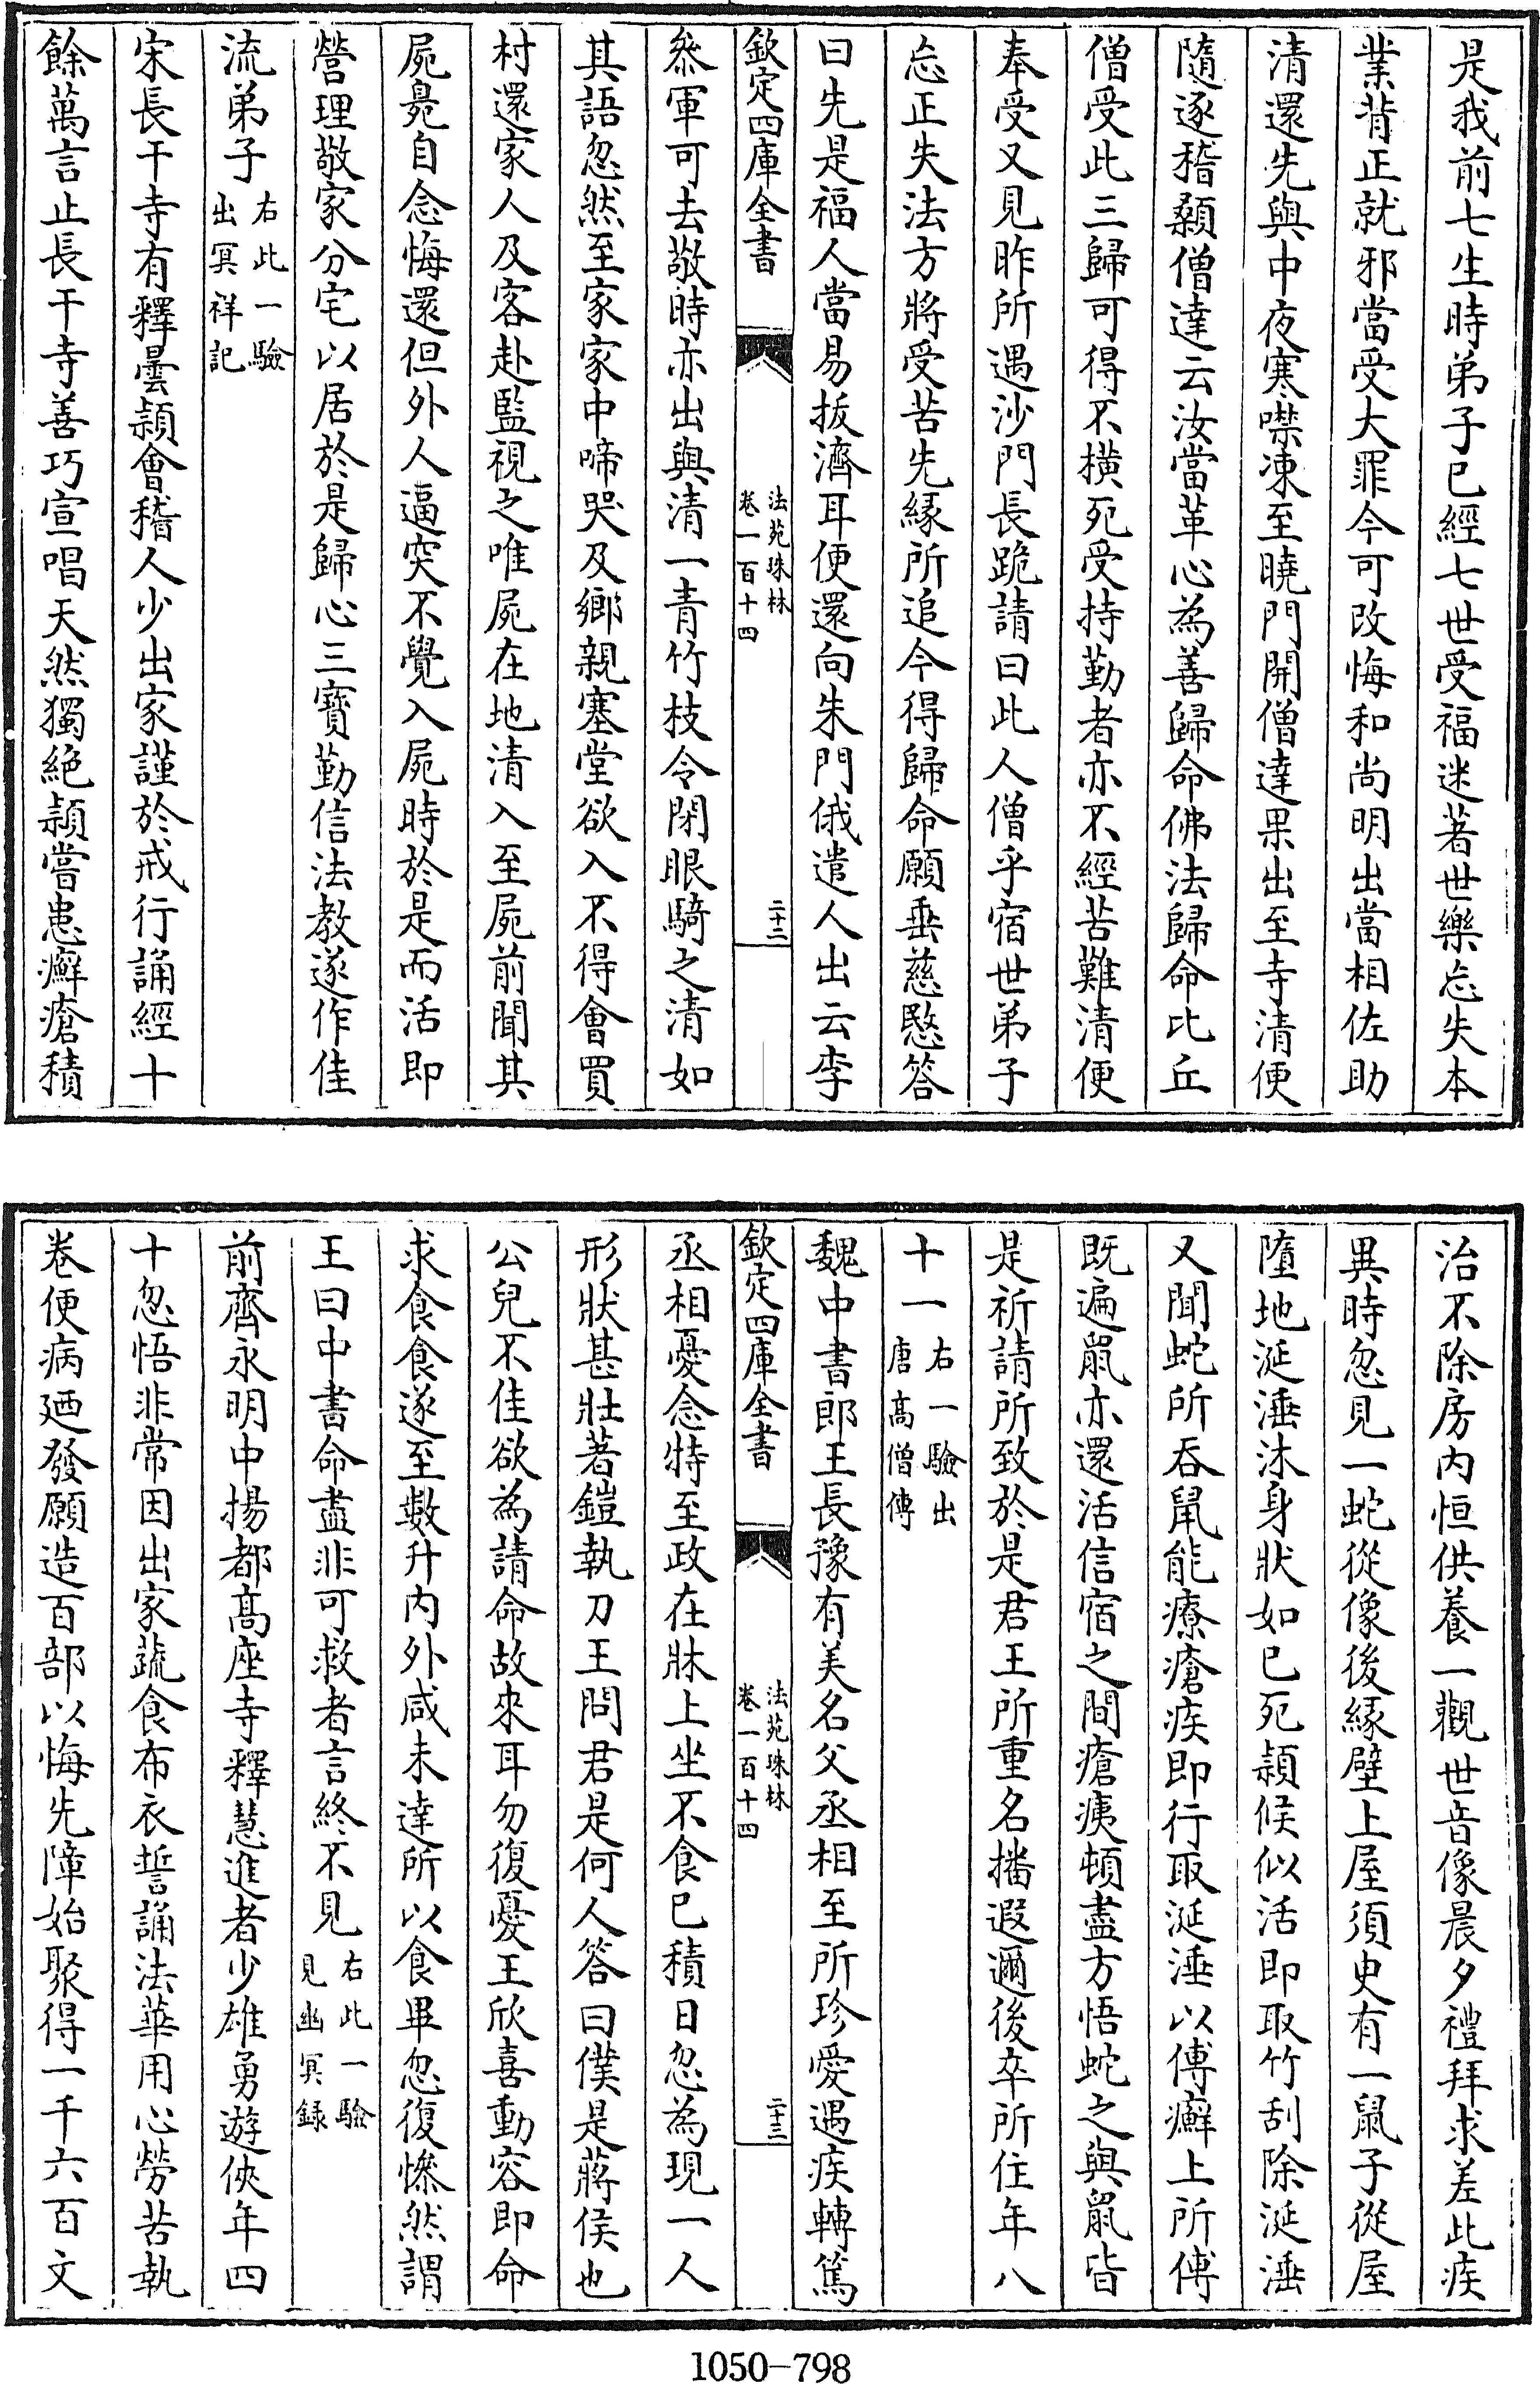 是我前七生時弟子已經七世受福迷著世樂忘失本
業背正就邪當受大罪今可改悔和尚明出當相佐助
清還先與中夜寒噤凍至曉門開僧達果出至寺清便
隨逐稽顙僧達云汝當革心為善歸命佛法歸命比丘
僧受此三歸可得不橫死受持勤者亦不經苦難清便
奉受又見昨所遇沙門長跪請曰此人僧乎宿世弟子
忘正失法方將受苦先緣所追今得歸命願垂慈愍答
曰先是福人當易拔濟耳便還向朱門俄遣人出云李
欽定四庫全書
法苑珠林
卷一百十四
二十二
叅軍可去敬時亦出與清一青竹枝令閉眼騎之清如
其語忽然至家家中啼哭及鄉親塞堂欲入不得會買
村還家人及客赴監視之唯屍在地清入至屍前聞其
屍臰自念悔還但外人逼突不覺入屍時於是而活即
營理敬家分宅以居於是歸心三寶勤信法教遂作佳
流弟子右此一驗
出冥祥記
宋長干寺有釋曇頴會稽人少出家謹於戒行誦經十
餘萬言止長干寺善巧宣唱天然獨絶頴嘗患癬瘡積
治不除房内恒供養一觀世音像晨夕禮拜求差此疾
異時忽見一蛇從像後緣壁上屋須臾有一鼠子從屋
墮地涎涶沐身狀如已死頴候似活即取竹刮除涎涶
又聞蛇所吞鼠能療瘡疾即行取涎涶以傅癬上所傅
既遍鼠亦還活信宿之間瘡痍頓盡方悟蛇之與鼠皆
是祈請所致於是君王所重名播遐邇後卒所住年八
十一右一驗出
唐髙僧傳
魏中書郎王長豫有美名父丞相至所珍愛遇疾轉篤
欽定四庫全書
法苑珠林
卷一百十四
二十三
丞相憂念特至政在牀上坐不食已積日忽為現一人
形狀甚壯著鎧執刀王問君是何人答曰僕是蔣侯也
公兒不佳欲為請命故來耳勿復憂王欣喜動容即命
求食食遂至數升内外咸未達所以食畢忽復慘然謂
王曰中書命盡非可救者言終不見右此一驗
見幽冥錄
前齊永明中揚都髙座寺釋慧進者少雄勇遊俠年四
十忽悟非常因出家蔬食布衣誓誦法華用心勞苦執
卷便病廼發願造百部以悔先障始聚得一千六百文
1050-798